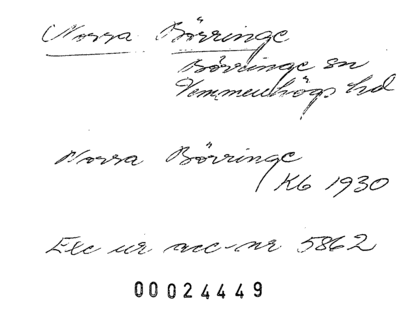 Norra Börringe
Börringe sn
Vemmenhögs hd
Norra Börringe
Kb 1930
Exc ur acc-nr 5862
00024449